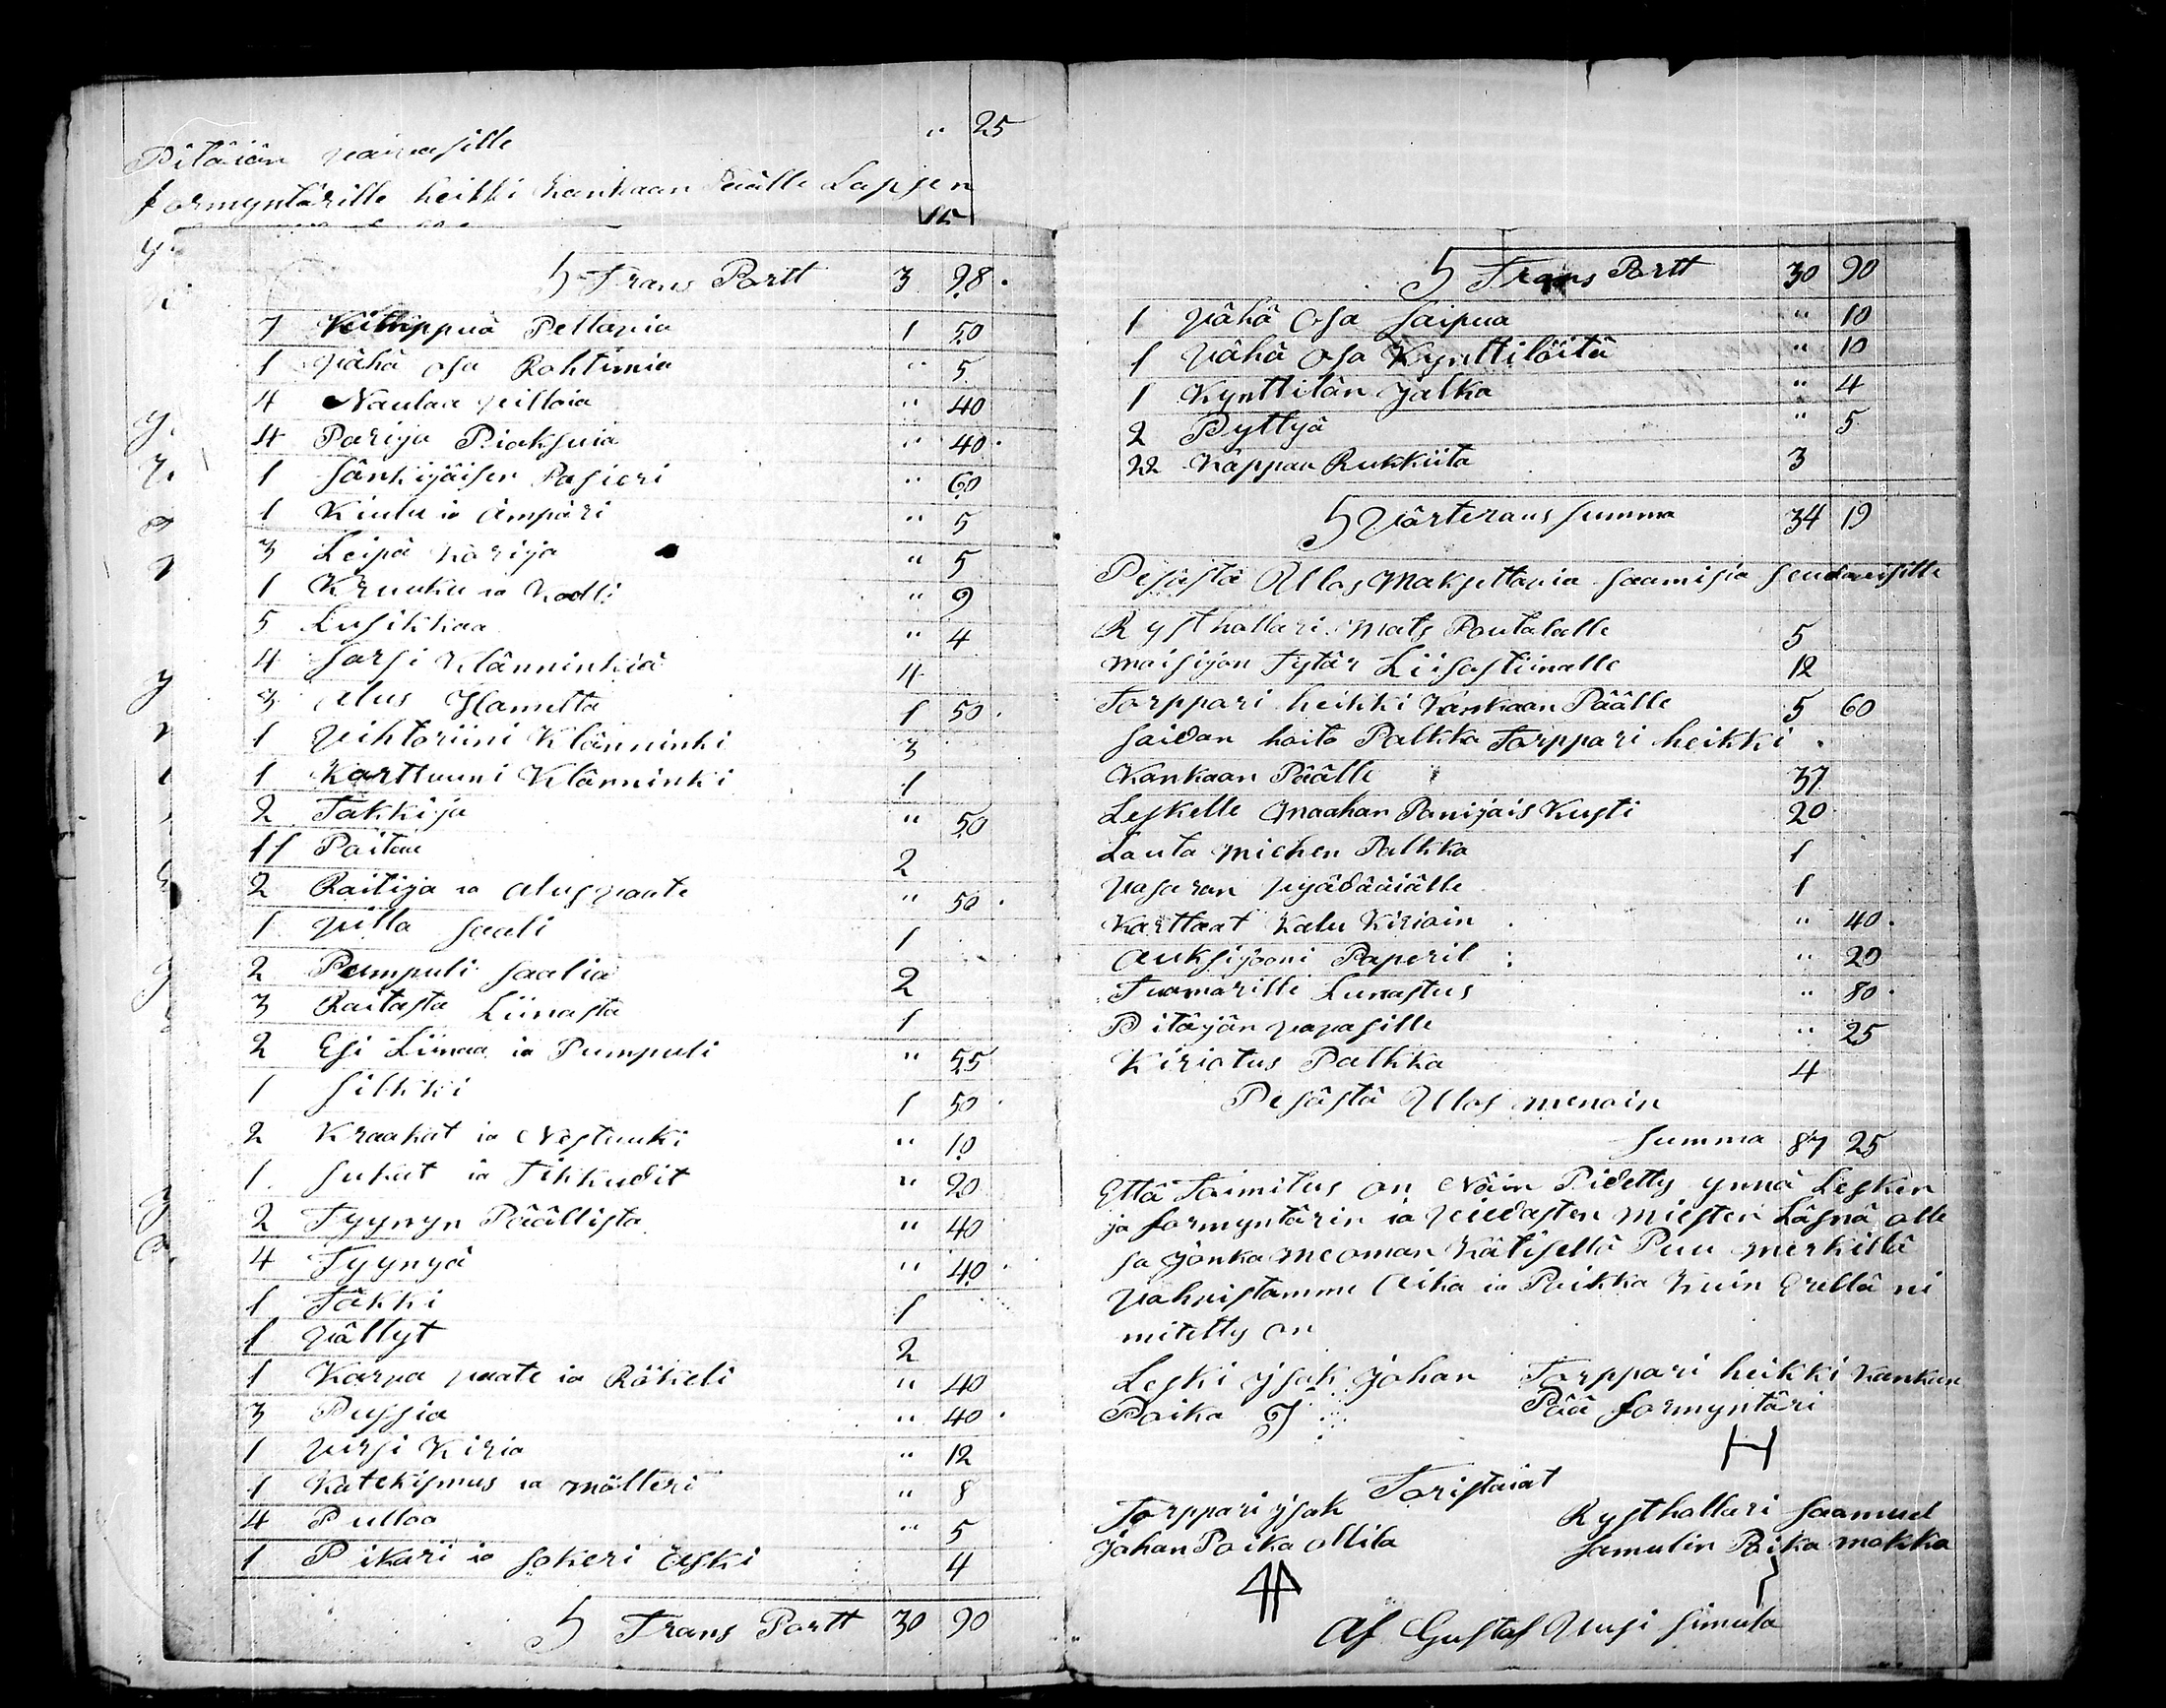 Pitäiän vaivasille " 25
formyntärille heikki Kankaan Päälle Lapsen
15
Trans Portt 3 98
7 Pellavia 1 50
1 Vähä osa Rohtimia " 5
4 Naulaa villoia " 40
4 Parija Piaksuia " 40
1 Sänkijäisen Pasieri " 60
1 Kiulu ia ämpäri " 5
3 Leipä Korija " 5
1 Kruuku ia " 9
5 Lusikkaa " 4
4 Sarsi Klänninkiä 4
3 Alus Hametta 1 50
1 Vihtoriini Klänninki 3
1 Karttuuni Klänninki 1
2 Takkija " 50
11 Paitaa 2
2 Raitija ia alus vaate " 50
1 Villa Saali 1
2 Pumpuli Saalia 2
3 Raitasta Liinasta 1
2 Esi Liinaa ia Pumpuli " 55
1 Silkki 1 50
2 Kraakat ia Nestuuki " 10
1 Sukat ia Tikkudit " 20
2 Tyynyn Päällista " 40
4 Tyynyä " 40
1 Täkki 1
1 Vällyt 2
1 Karva vaate ia Röhkeli " 40
3 Pussia " 40
1 Virsi Kiria " 12
1 Katekismus ia mälteri " 8
4 Pulloa " 5
1 Pikari ia Sokeri Aski 4
Trans Portt 30 90
Trans Portt 30 90
1 Vähä Osa Saipua " 10
1 Vähä Osa Kynttilöitä " 10
1 Kynttilän Jalka " 4
2 Pyttyä " 5
22 Kappaa Rukkiita 3
Värterans Summa 34 19
Pesästä Ulos Maksettavia Saamisia
Rysthallari Mats Poutalalle 5
Maisijan Tytär Liisastiinalle 12
Torppari heikki Kankaan Päälle 5 60
Saidan hoito Palkka Torppari heikki
Kankaan Päälle 37
Leskelle Maahan Panijais Kusti 20
Lauta miehen Palkka 1
Vasaran 1
Karttaat Kalu Kirioin " 40
Auksijooni Paperil " 20
Tuomarille Lunastus " 80
Pitäjän vaivasille " 25
Kiriotus Palkka 4
Pesästä Ulos menoin
Summa 87 25
Että Toimitus on Näin Pidetty ynnä Lesken
ja formyntärin ia Miesten Läsnä olle
sa Jonka me oman Kätisellä Puu merkillä
Vahvistamme Aika ia Paikka Kuin Erellä ni
mitetty on
Leski Isak Johan Torppari heikki Kankan
Poika IJ Pää formyntäri
H
Toristaiat
Torppari Isak Rysthallari Saamuel
Johan Poika Ollila Samulin Poika mokka
Af Gustaf Uusi Simula